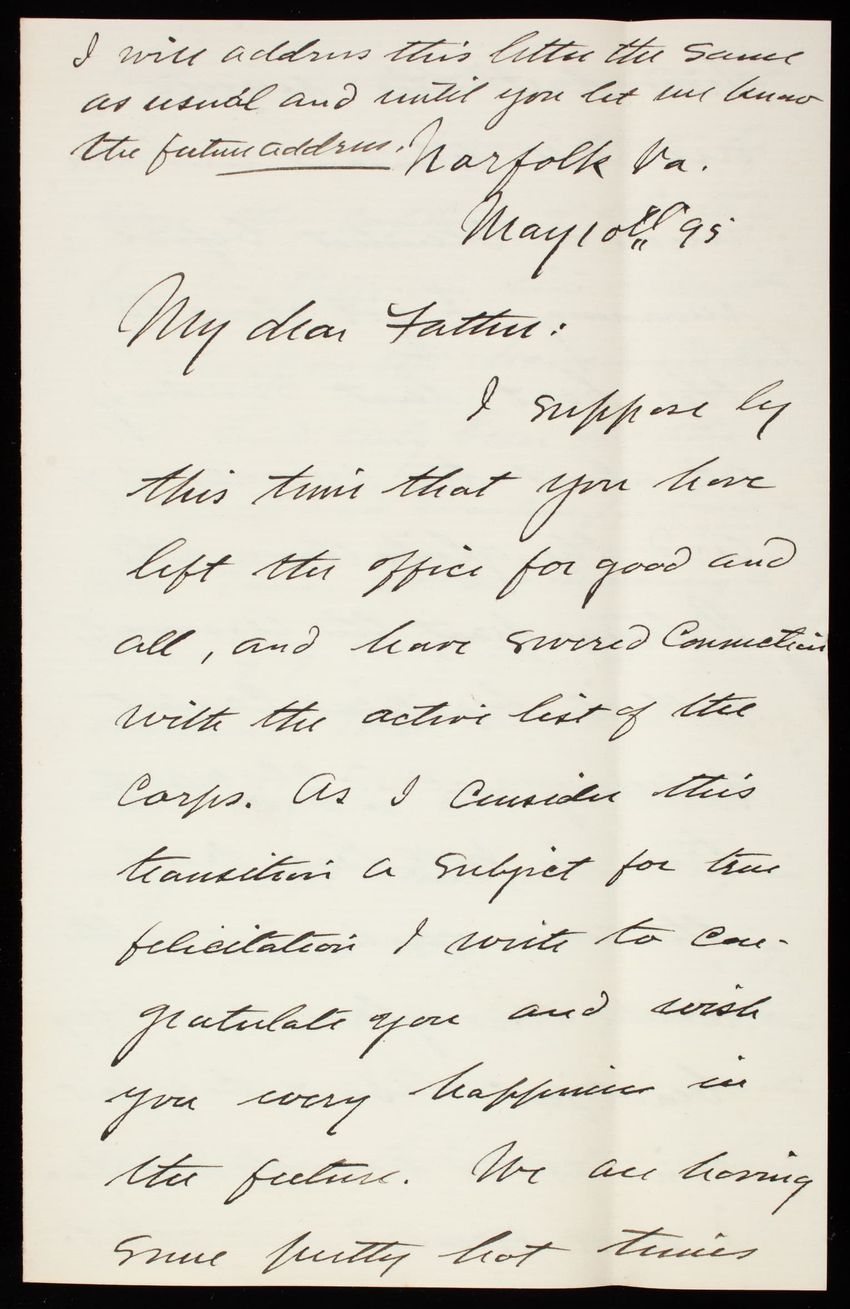 I will address this letter the same
as usual and until you let me know
the future address.
Norfolk Va.
May 10th 95
My dear Father:
I suppose by
this time that you have
left the office for good and
all, and have severed Connection
with the active list of the
Corps. As I consider this
transition a subject for true
felicitation I write to con-
gratulate you and wish
you every happiness in
the future. We are having
some pretty hot times